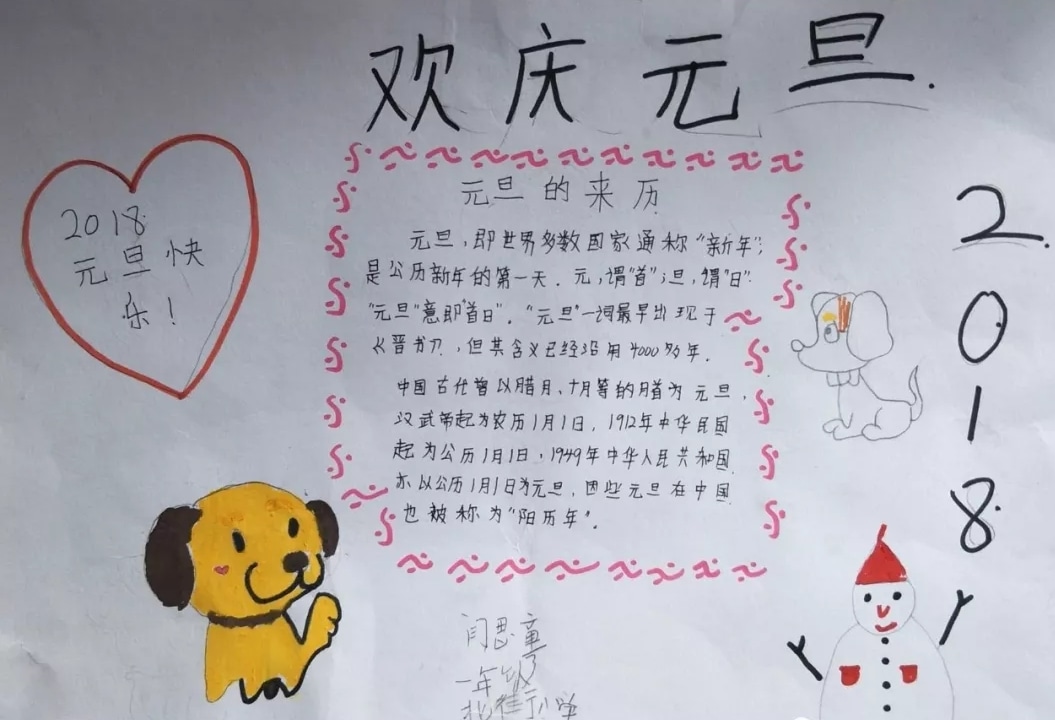 欢庆元旦.
2018
元旦快
乐！
元旦的来历
元旦，即世界多数国家通称“新年”，
是公历新年的第一天．元，谓“首”；旦，谓“日”．
“元旦”意即“首日”．“元旦”一词最早出现于
《晋书》，但其含义已经沿用4000多年．
中国古代曾以腊月、十月等的月首为元旦，
汉武帝起为农历1月1日，1912年中华民国
起为公历1月1日，1949年中华人民共和国
亦以公历1月1日为元旦，因些元旦在中国
也被称为“阳历年”．
2.
0
1
8
闫思童
一年级
小学